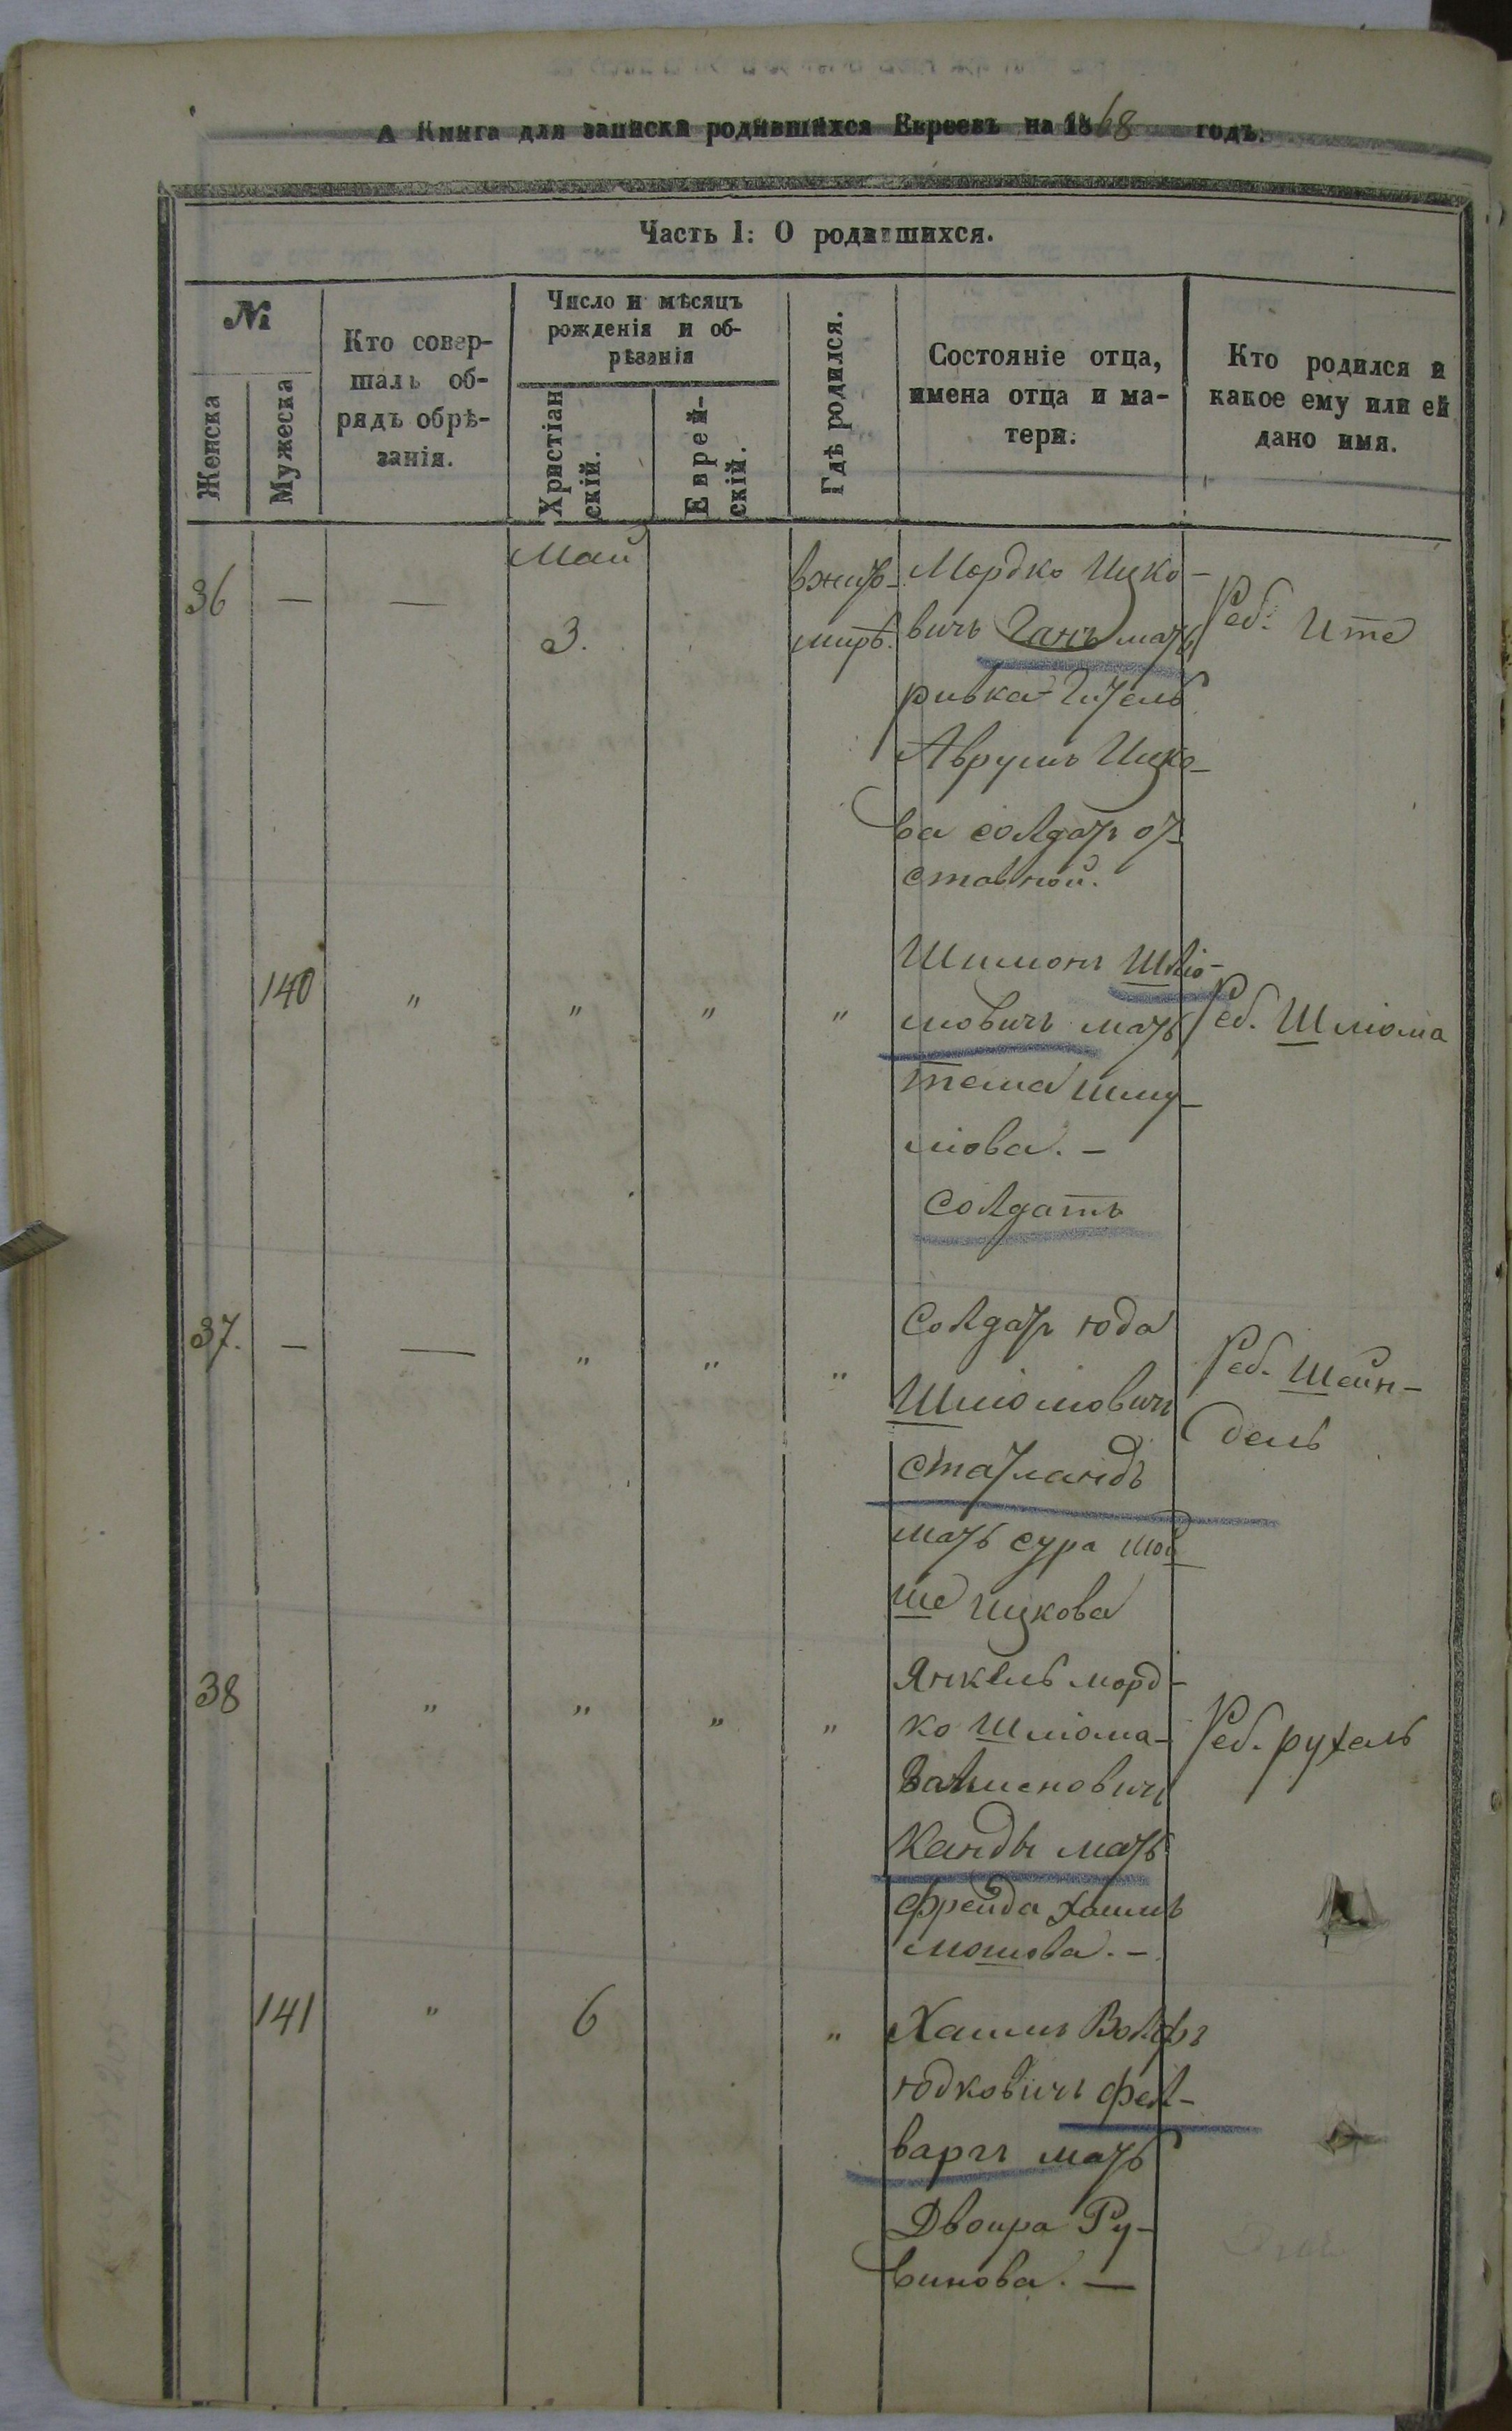 А Книга для записки родившихся Евреевъ на 1868 годъ.
Часть I: О родившихся.
№
Женска
Мужеска
Кто совер-
шалъ об-
рядъ обрѣ-
занія.
Число и мѣсяцъ
рожденія и об-
рѣзанія
Христіан
скій.
Еврей-
скій.
Гдѣ родился.
Состояніе отца,
имена отца и ма-
тери.
Кто родился и
какое ему или ей
дано имя.
Май
36 — — 3.
вжит-
мирѣ.
Мордко Ицко-
вичъ Ганъ мать
ривка-Гитель
Аврумъ Ицко-
ва солдатъ от-
ставной.
Реб. Ите
140 " " " "
Шимонъ Шлiо-
мовичъ мать
тема шму-
лiова. -
солдатъ
Реб. Шлiома
37. — — " " "
солдатъ юда
Шлiомовичъ
стаTландъ
мать сура мой
ше ицкова
Реб. Шейн-
дель
38 " " " "
Янкель морд-
ко Шлiома-
Залменовичъ
Кандъ мать
фрейда хаимъ
мошова. -
Реб. рухель
141 " 6 "
Хаимъ Волфъ
юдковичъ фел-
варгъ мать
Двойра Ру-
винова. —